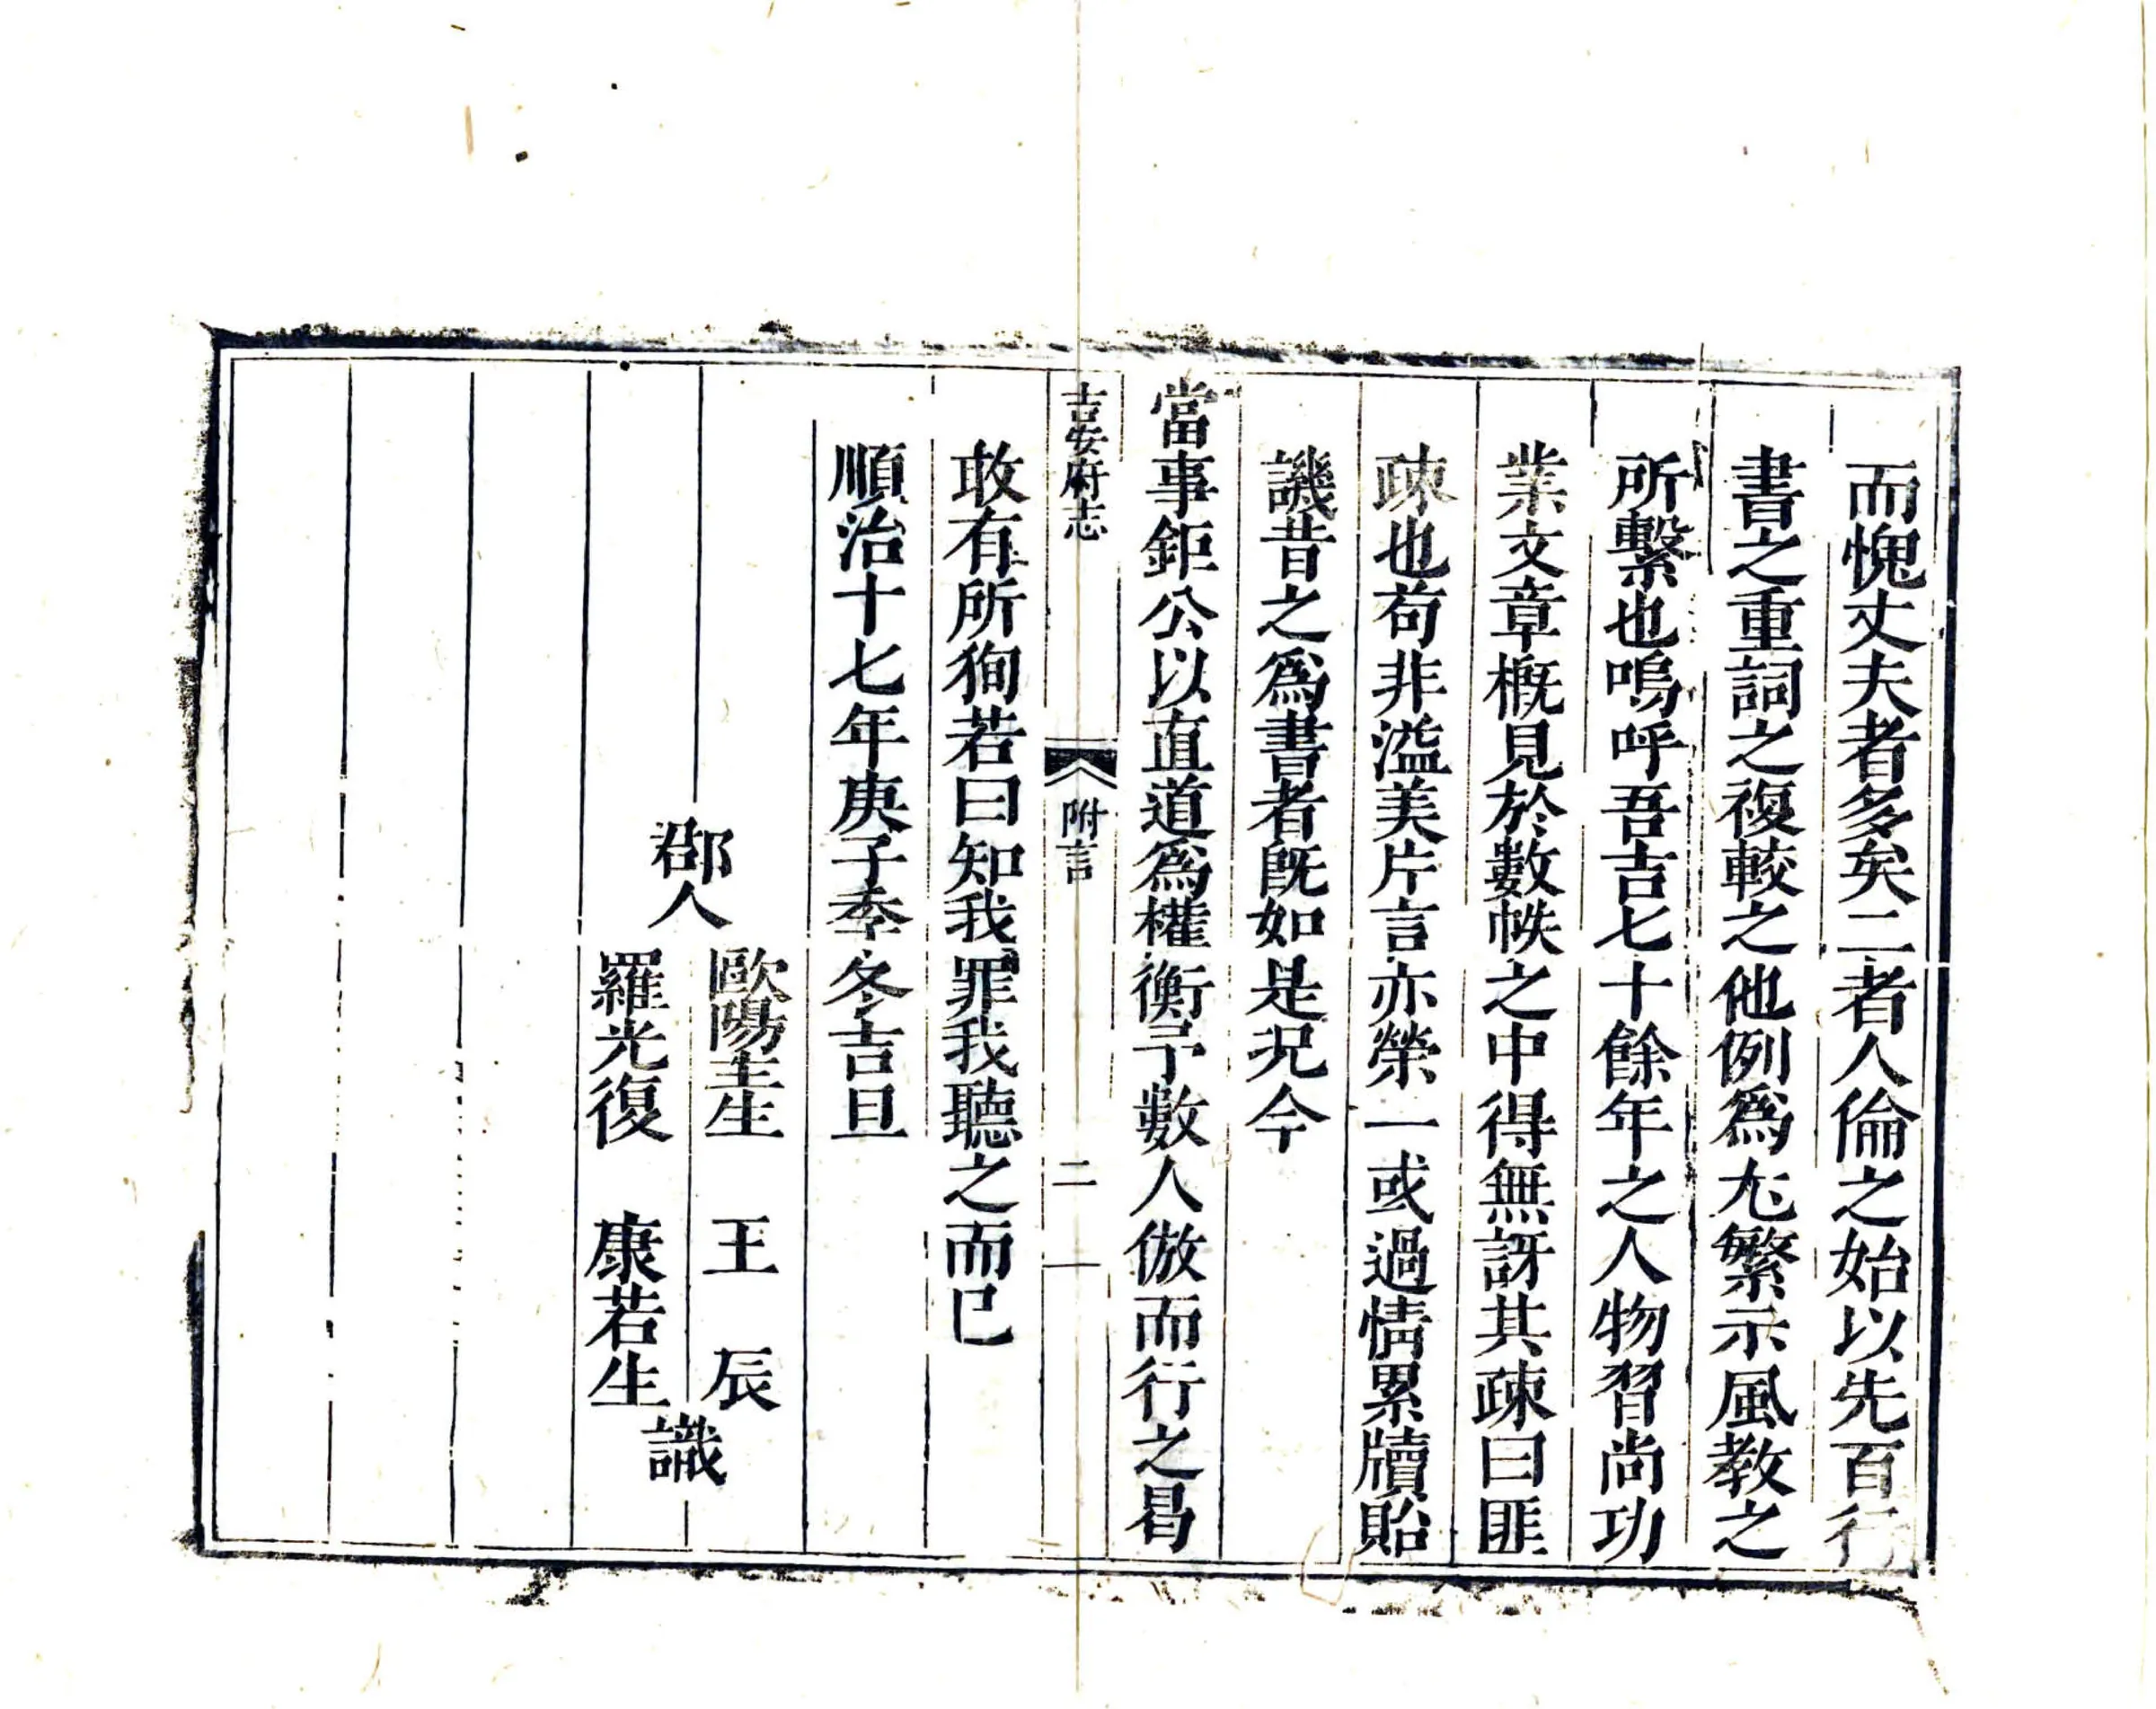 而愧丈夫者多矣二者人倫之始以先百行
書之重詞之複較之他例爲尢繁示風教之
所繫也嗚呼吾吉七十餘年之人物習尚功
業文章概見於數帙之中得無訝其疎曰匪
疎也苟非溢美片言亦榮一或過情累牘貽
譏昔之爲書者旣如是况今
當事鉅公以直道爲權衡予數人倣而行之曷
吉安府志 附言 二
敢有所狥若曰知我罪我聽之而已
順治十七年庚子季冬吉旦
郡人
歐陽主生 王辰
羅光復 康若生
識